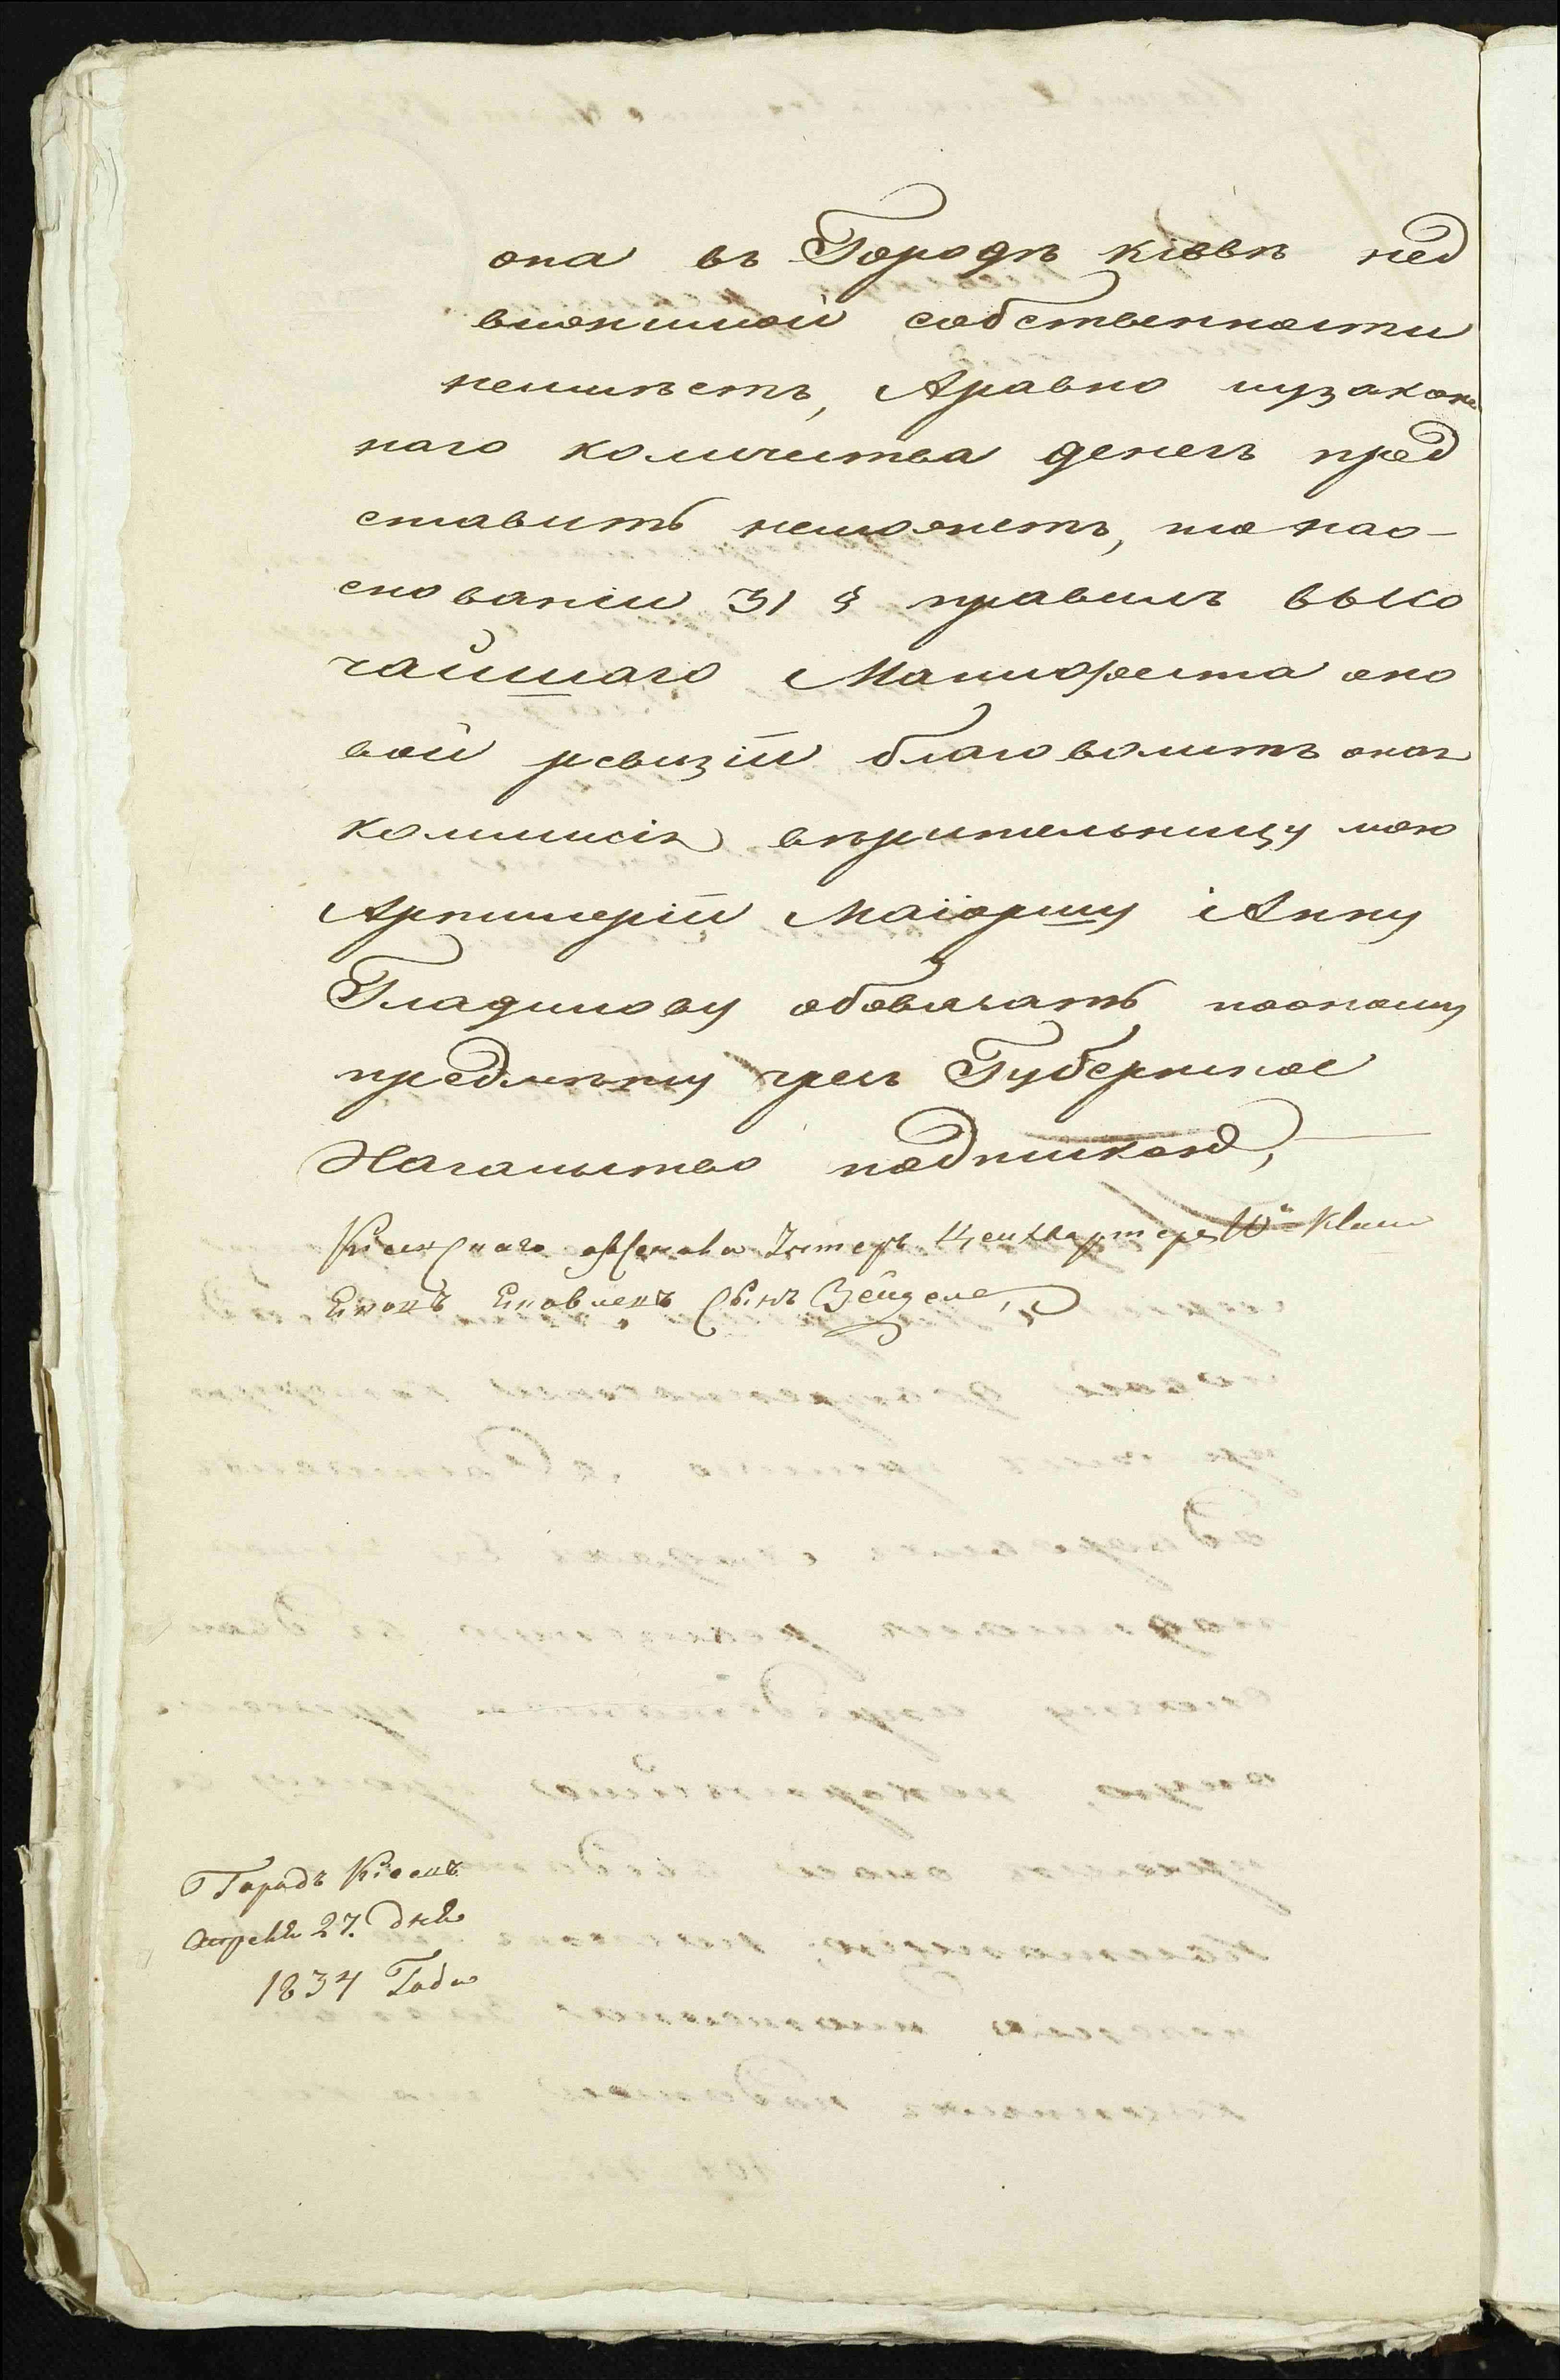 она въ Городѣ кіевѣ нед
вижимой собственности
неимѣетъ, Аравно иузакон
наго количества денегъ пред
ставить неможетъ, то нао-
снованіи 31 § правилъ высо
чайшаго Манифеста оно
вой ревизіи благоволитъ оная
коммисія вѣрительницу мою
Артилеріи Маіоршу Анну
Гладилову обовязать поономy
предмѣту чрезъ Губернское
Начальство подпискою,
Кіевскаго Арсенала Цейхвартеръ
Яковъ Яковлевъ Сынъ Вейделе
Городъ Кіевъ
Апреля 27. дня
1834 Года